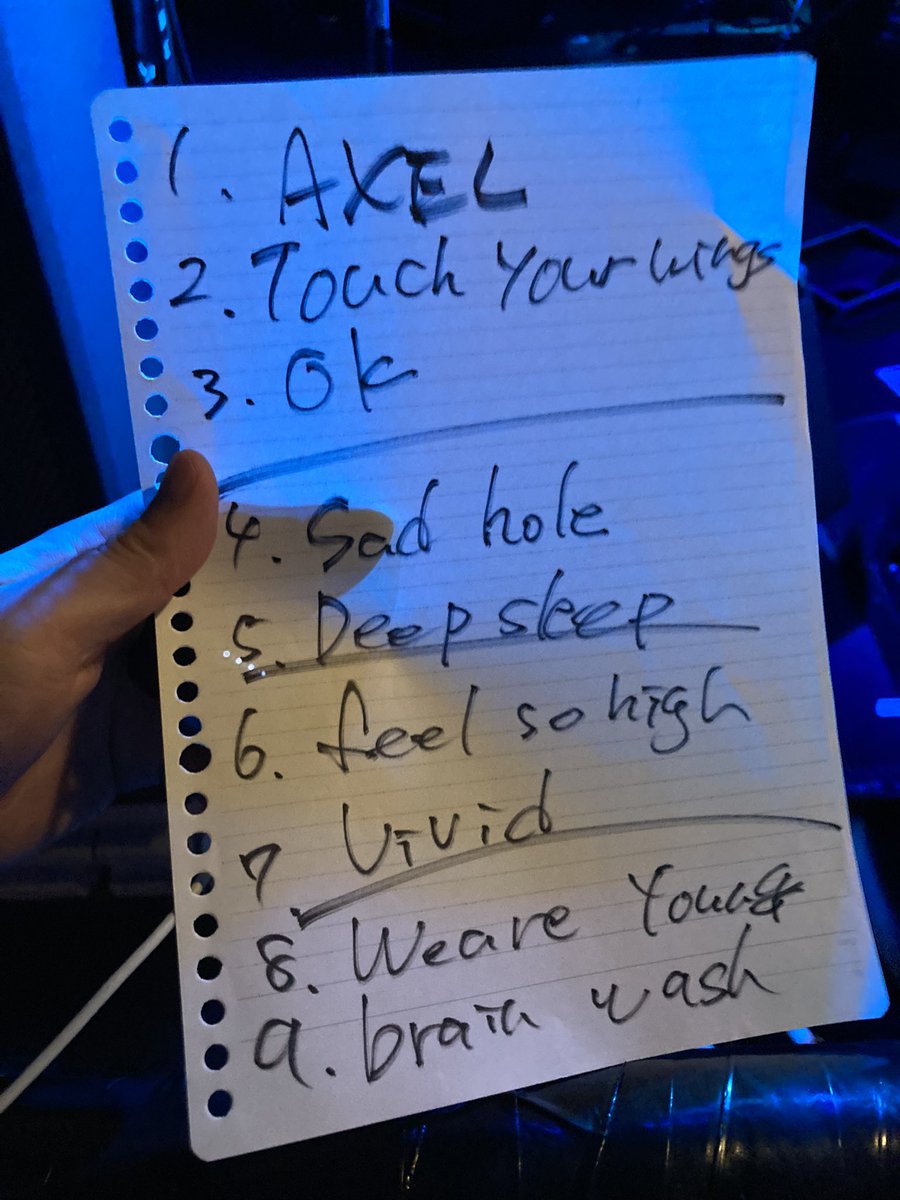 1. AXEL
2. Touch Your wings
3. Ok
4. Sad hole
5. Deep sleep
6. feel so high
7 Vivid
8. We are Young
9. brain wash